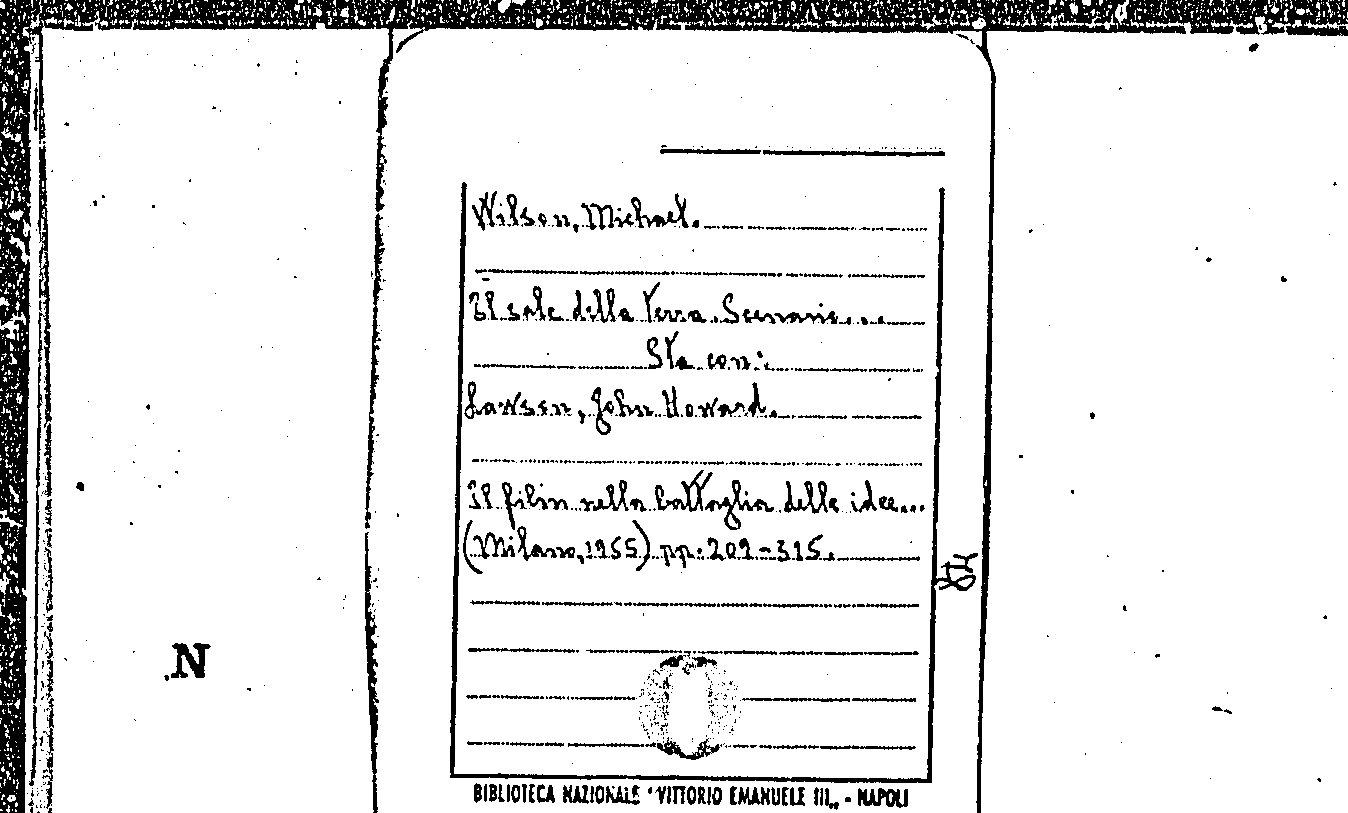 Wilson, Michael.
Il sale della terra. Scenario...
Sta con:
Lawson, John Howard.
Il film nella battaglia delle idee...
(Milano, 1955) pp. 209-315.
N
BIBLIOTECA NAZIONALE "VITTORIO EMANUELE III„ - NAPOLI